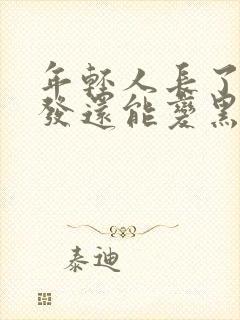 年輕人長了
發還能變黑
泰迪